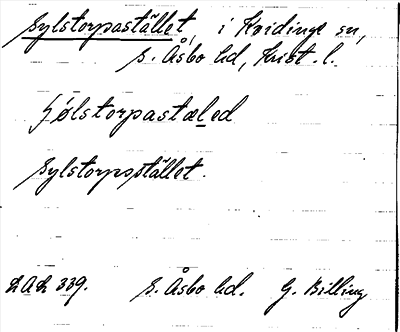 Sylstorpastället, i Kvidinge sn,
S. Åsbo hd, Krist. l.
sølstorpastæled
Sylstorpsstället.
LAL 339. S. Åsbo hd. G. Billing